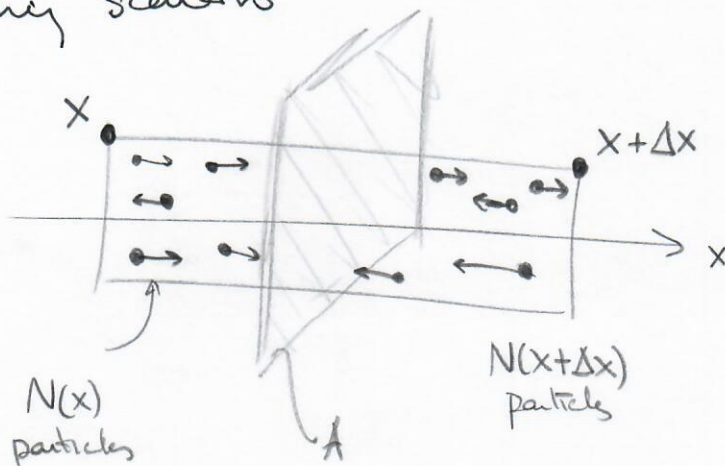 X
X+Δx
x
N(x)
particles
N(x+Δx)
particles
A